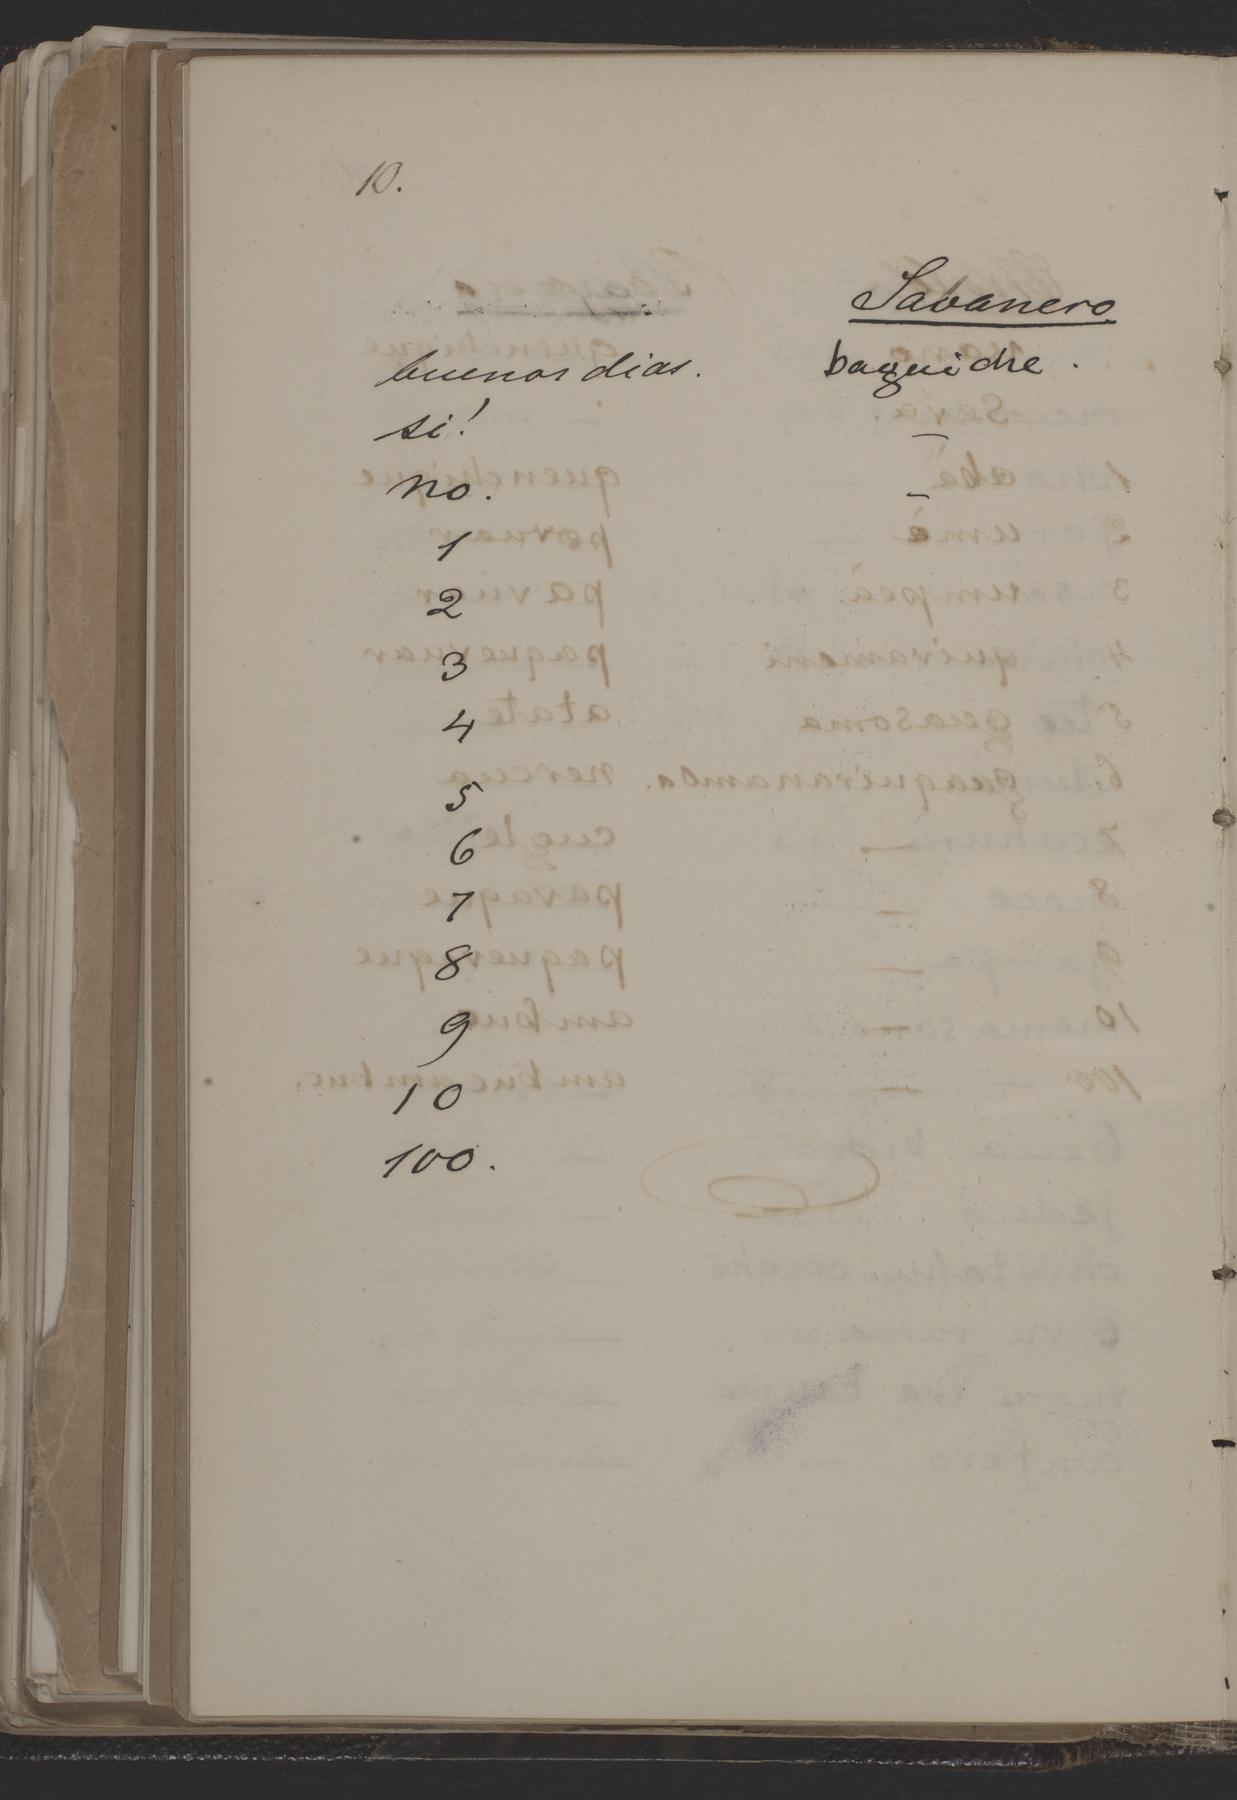 10.
Sabanero
buenos dias. baguiche.
si! –
no. –
1
2
3
4
5
6
7
8
9
10
100.